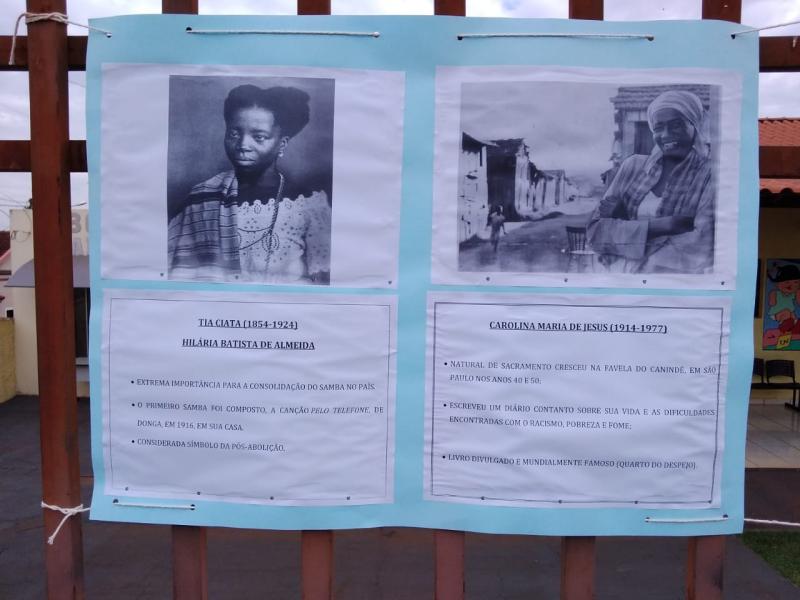 TIA CIATA (1854-1924)
HILÁRIA BATISTA DE ALMEIDA
• EXTREMA IMPORTÂNCIA PARA A CONSOLIDAÇÃO DO SAMBA NO PAÍS.
• O PRIMEIRO SAMBA FOI COMPOSTO, A CANÇÃO PELO TELEFONE, DE
DONGA, EM 1916, EM SUA CASA.
• CONSIDERADA SÍMBOLO DA PÓS-ABOLIÇÃO.
CAROLINA MARIA DE JESUS (1914-1977)
• NATURAL DE SACRAMENTO CRESCEU NA FAVELA DO CANINDÉ, EM SÃO
PAULO NOS ANOS 40 E 50;
• ESCREVEU UM DIÁRIO CONTANTO SOBRE SUA VIDA E AS DIFICULDADES
ENCONTRADAS COM O RACISMO, POBREZA E FOME;
• LIVRO DIVULGADO E MUNDIALMENTE FAMOSO (QUARTO DO DESPEJO).